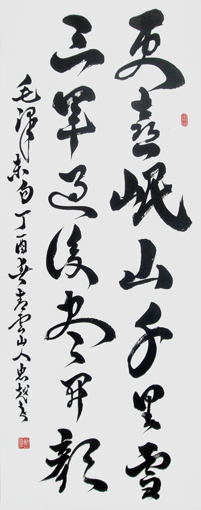 更喜岷山千里雪
三军过后尽开颜
毛泽东句丁酉春青云山人忠超书